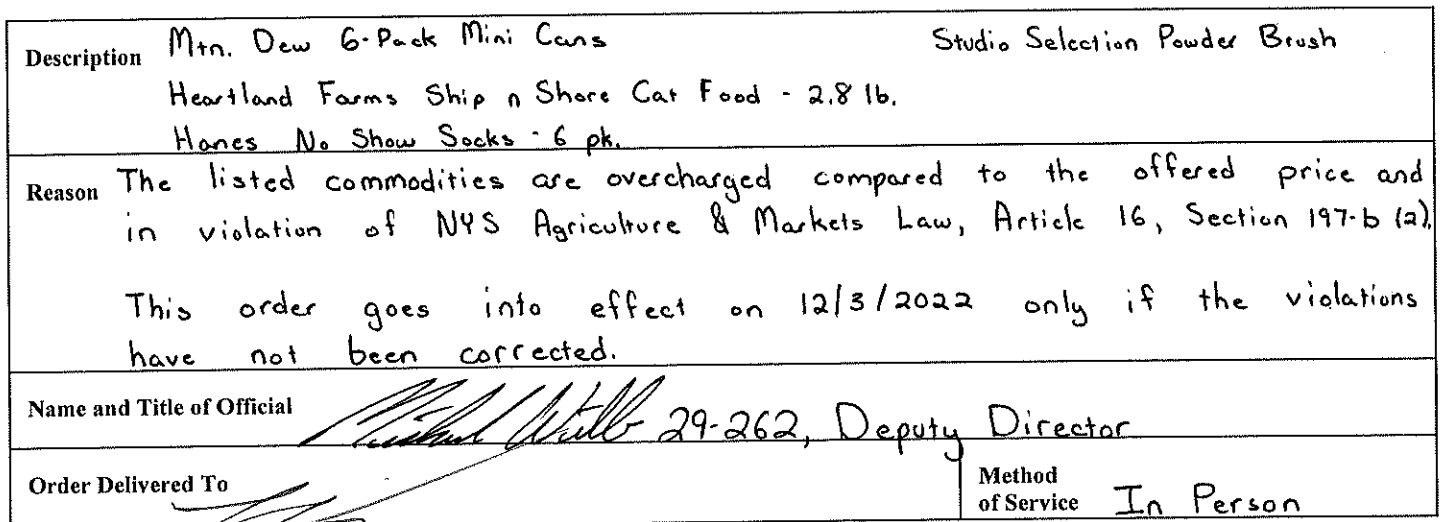 Description Mtn. Dew 6-Pack Mini Cans Studio Selection Powder Brush
Heartland Farms Ship n Shore Cat Food - 2.8 lb.
Hanes No Show Socks - 6 pk.
Reason The listed commodities are overcharged compared to the offered price and
in violation of NYS Agriculture & Markets Law, Article 16, Section 197-b (2).
This order goes into effect on 12/3/2022 only if the violations
have not been corrected.
Name and Title of Official 29-262, Deputy Director
Order Delivered To
Method
of Service In Person